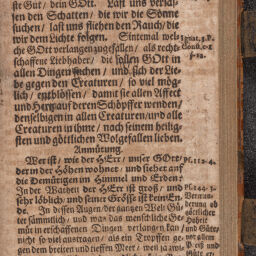 ste Gut / dein GOtt. Last uns verlas-
sen den Schatten / die wir die Sonne
suchen / last uns fliehen den Rauch / die
wir dem Lichte folgen. Sintemal wel-
che GOtt verlangen zugefallen / als recht-
schaffene Liebhaber / die sollen GOtt in
allen Dingen suchen / und sich der Lie-
be gegen den Creaturen / so viel mög-
lich / entblössen / damit sie allen Affect
und Hertz auf deren Schöpffer wenden /
denselbigen in allen Creaturen / und alle
Creaturen in ihme / nach seinem heilig-
sten und göttlichen Wolgefallen lieben.
Anmütung.
Wer ist / wie der HErr / unser GOtt /
der in der Höhen wohnet / und siehet auf
die Demütigen im Himmel und Erden?
In der Warheit der HErr ist groß / und
sehr löblich / und seiner Grösse ist kein En-
de. In dessen Augen der gantzen Welt Gü-
ter sämmtlich / und was das menschliche Ge-
müt in erschaffenen Dingen verlangen kan /
nicht so viel austragen / als ein Tropffen ge-
gen dem breiten und tieffen Meer / weil ja zwi-
Ignat. p.
Const. c. 1
Ps. 112. 4.
Ps. 144. 3.
Verwun-
derung ob
göttlicher
Hoheit
und Güte
vor allem